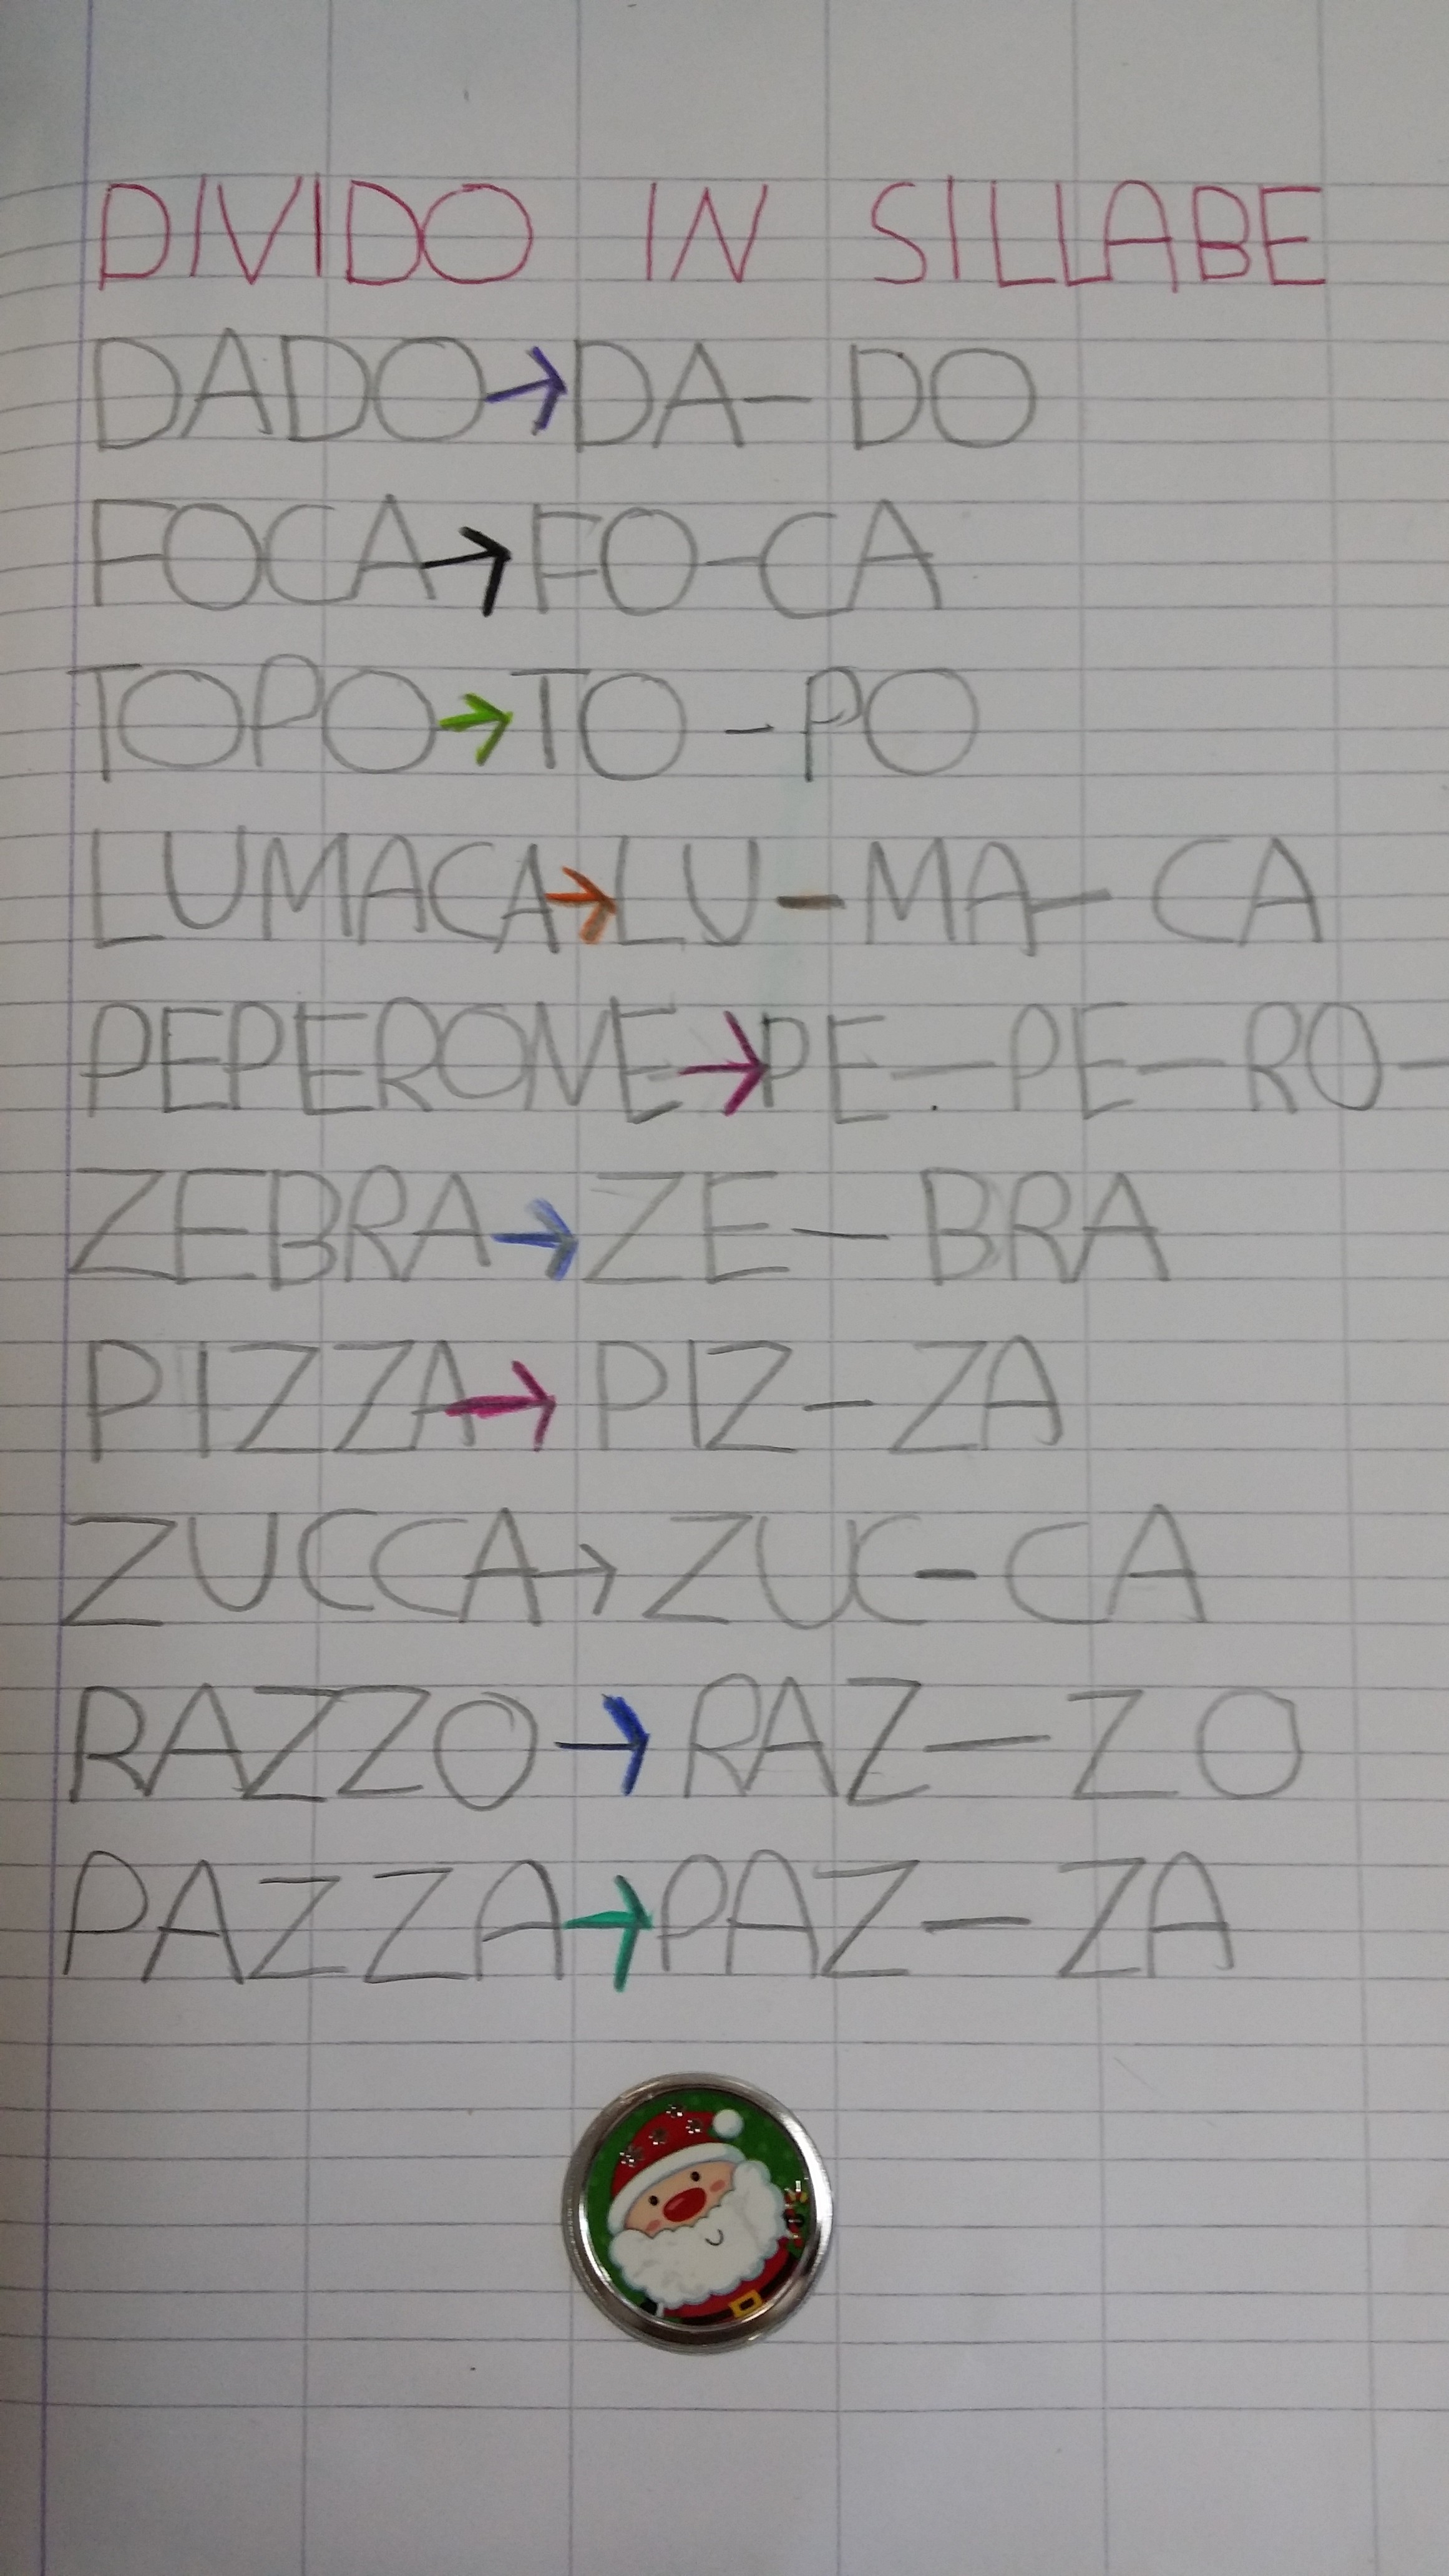 DIVIDO IN SILLABE
DADO→DA-DO
FOCA→FO-CA
TOPO→TO-PO
LUMACA→LU-MA-CA
PEPERONE→PE-PE-RO-
ZEBRA→ZE-BRA
PIZZA→PIZ-ZA
ZUCCA→ZUC-CA
RAZZO→RAZ-ZO
PAZZA→PAZ-ZA